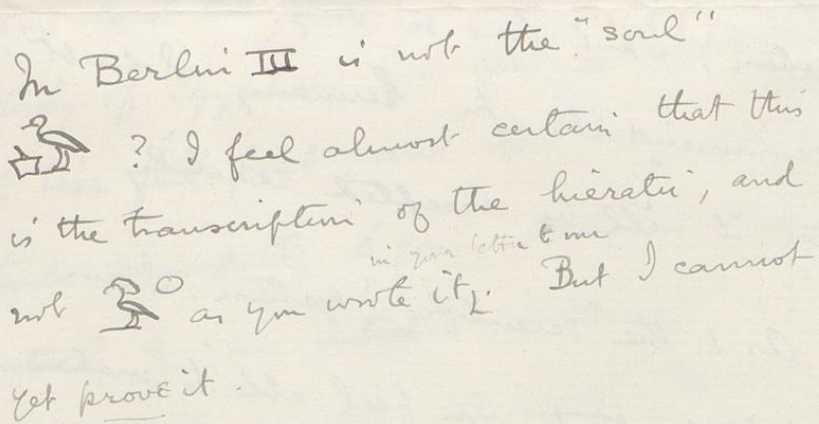 In Berlin III is not the "soul"
𓅡 ? I feel almost certain that this
is the transcription of the hieratic, and
in your letter to me
not 𓅜 as you wrote it. But I cannot
yet prove it.